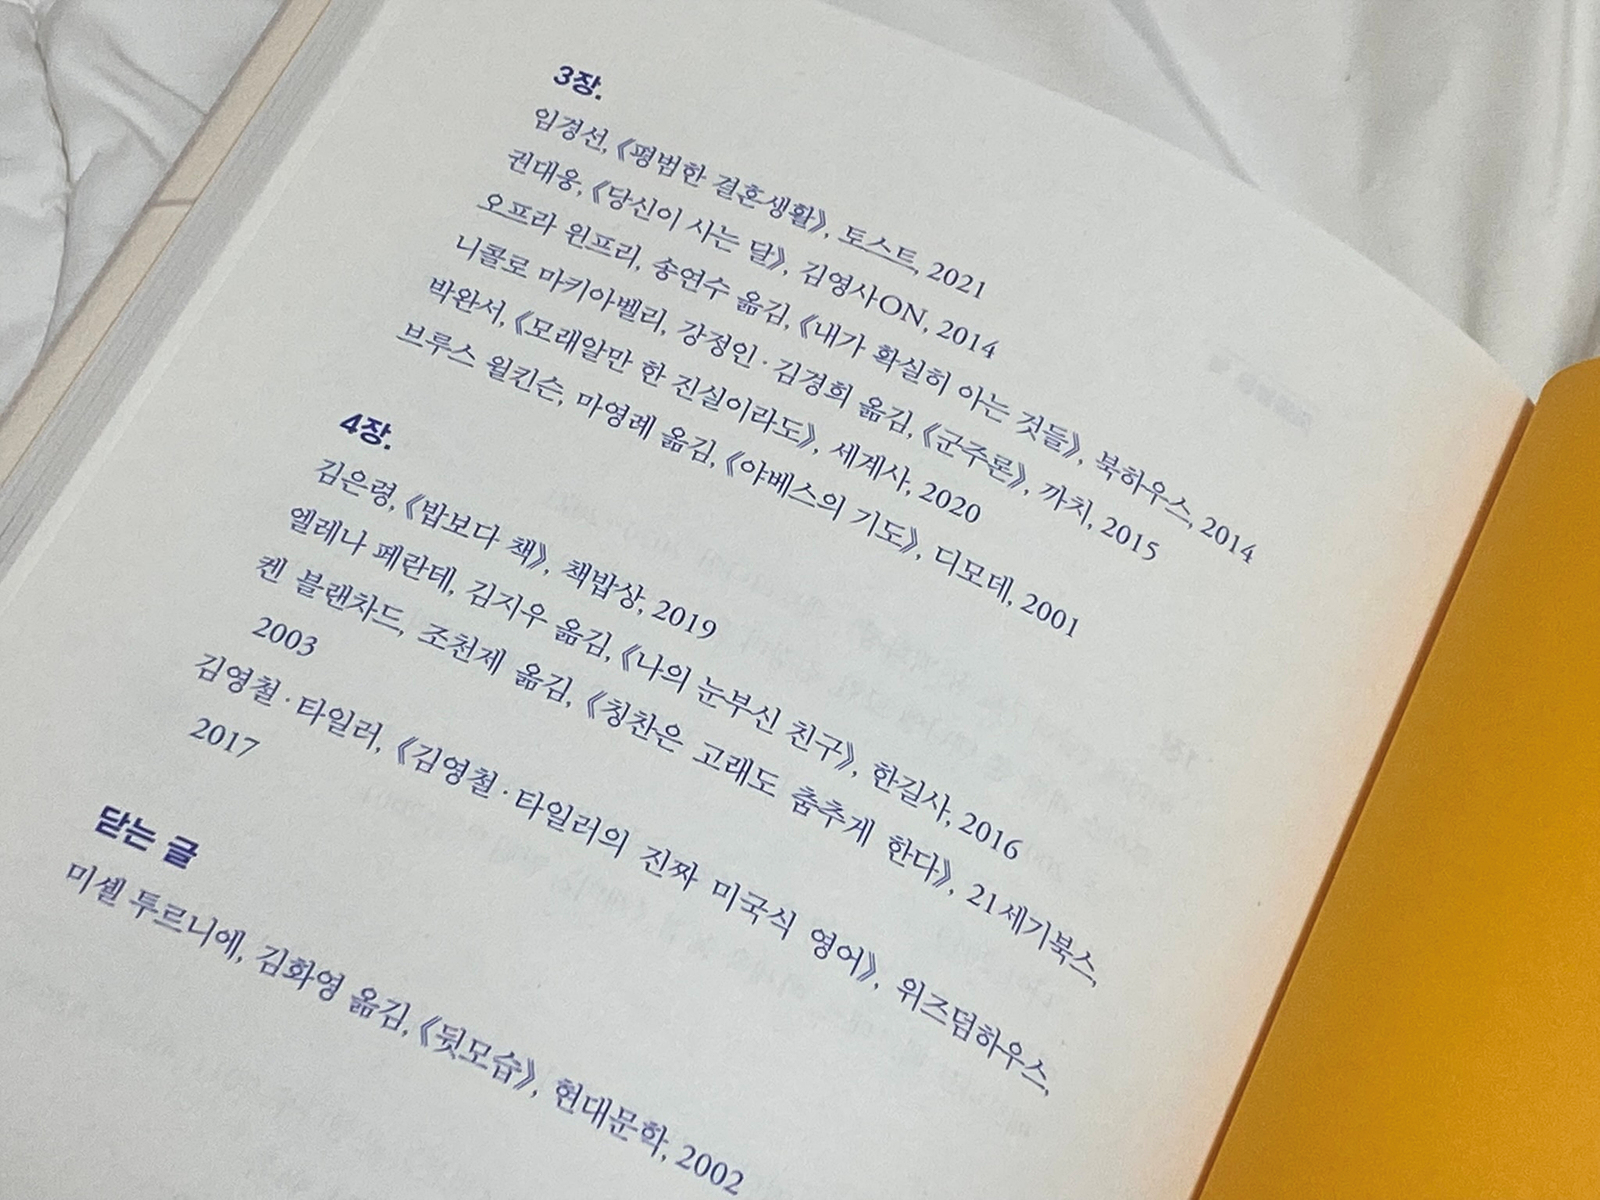 3장.
임경선, 《평범한 결혼생활》, 토스트, 2021
권대웅, 《당신이 사는 달》, 김영사ON, 2014
오프라 윈프리, 송연수 옮김, 《내가 확실히 아는 것들》, 북하우스, 2014
니콜로 마키아벨리, 강정인·김경희 옮김, 《군주론》, 까치, 2015
박완서, 《모래알만 한 진실이라도》, 세계사, 2020
브루스 윌킨슨, 마영례 옮김, 《야베스의 기도》, 디모데, 2001
4장.
김은령, 《밥보다 책》, 책밥상, 2019
엘레나 페란테, 김지우 옮김, 《나의 눈부신 친구》, 한길사, 2016
켄 블랜차드, 조천제 옮김, 《칭찬은 고래도 춤추게 한다》, 21세기북스,
2003
김영철·타일러, 《김영철·타일러의 진짜 미국식 영어》, 위즈덤하우스,
2017
닫는 글
미셸 투르니에, 김화영 옮김, 《뒷모습》, 현대문학, 2002